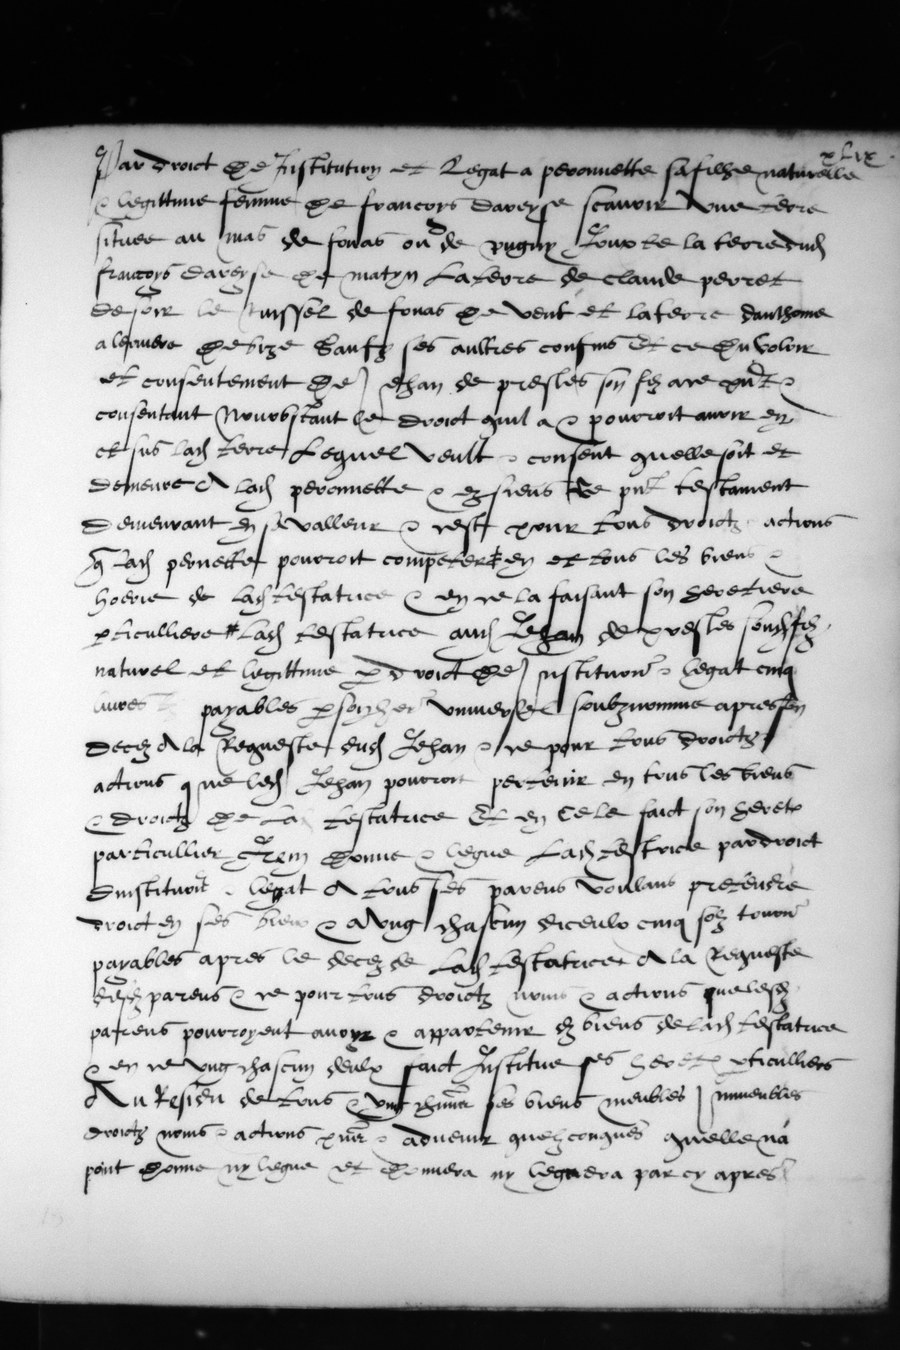 xlix
Par droict de Institution et Legat a peronnette sa filhe naturelle
& legittime femme de francoys daveyse scavoir une terre
situee au mas de fonas ou de pugny Jouxte la terre dud
francoys daveyse de matyn La terre de claude perret
de soir le ruissel de fonas de vent et la terre danthoine
a lerviere de bize Saufz ses aultres confins Et ce du voloir
et consentement de Jehan de presles son filz
consentant Nonobstant le droict quil a & pourroit avoir en
et sus lad terre Lequel veult & consent quelle soit et
demeure A lad peronnette & ez siens Le pnt testament
Demeurant en sa valleur & ce pour tous droictz actions
q lad pernette pourroit competer en et tous les biens &
hoerie de lad testatrice & en ce la faisant son heretiere
pticulliere lad testatrice aud Jehan de presles sond filz
naturel et legittime p droict de Institution & legat cinq
livres payables p son her universel soubznomme apres son
decez A la Requeste dud Jehan & ce pour tous droictz
actions que led Jehan pourroit pretenir en tous les biens
& droictz de La testatrice Et en ce le faict son heret
particullier Item donne & legue Lad testatrice par droict
dinstitution & legat A tous ses parens voulans pretendre
droict en ses biens & A ung chascun diceulx cinq solz tourn
payables apres le decez de Lad testatrice A la Requeste
desd parens & ce pour tous droictz noms & actions que lesd
parens pourroyent avoyr & appartenir ez biens de lad testatrice
& en ce ung chascun deulx faict Institue ses heret pticulliers
Au Residu de tous & ung chascun ses biens meubles Immeubles
droictz noms & actions pns & advenir quelzconques quelle na
point donne ny legue et donnera ny leguera par cy apres